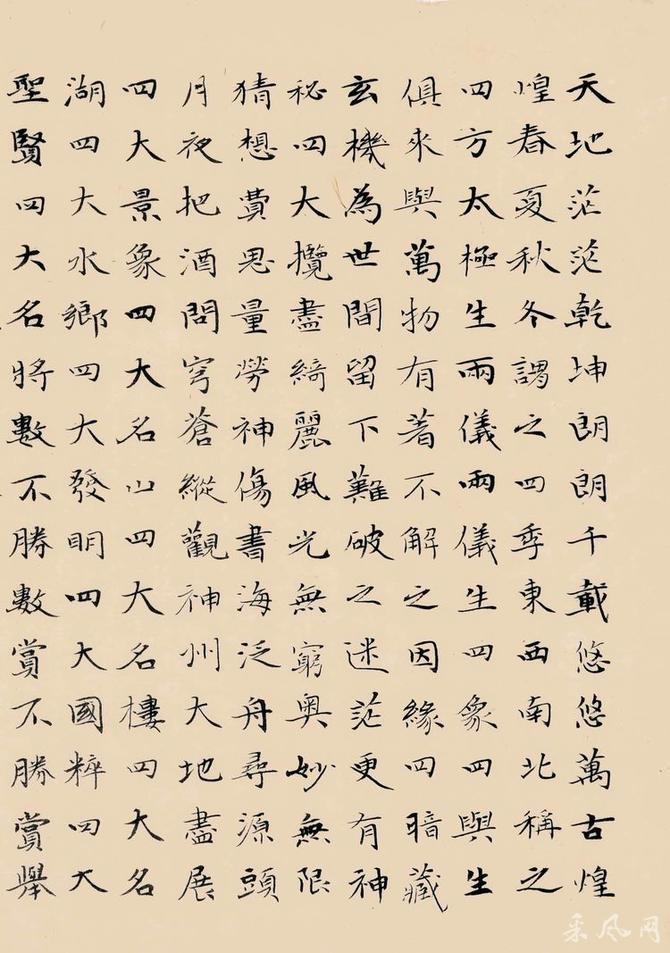 天地茫茫乾坤朗朗千載悠悠萬古煌
煌春夏秋冬謂之四季東西南北稱之
四方太極生兩儀兩儀生四象四與生
俱來與萬物有著不解之因緣四暗藏
玄機為世間留下難破之迷茫更有神
秘四大攬盡綺麗風光無窮奧妙無限
猜想費思量勞神傷書海泛舟尋源頭
月夜把酒問穹蒼縱觀神州大地盡展
四大景象四大名山四大名樓四大名
湖四大水鄉四大發明四大國粹四大
聖賢四大名將數不勝數賞不勝賞舉
采风网